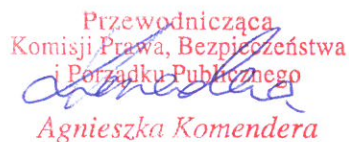 Przewodnicząca
Komisji Prawa, Bezpieczeństwa
i Porządku Publicznego
Agnieszka Komendera